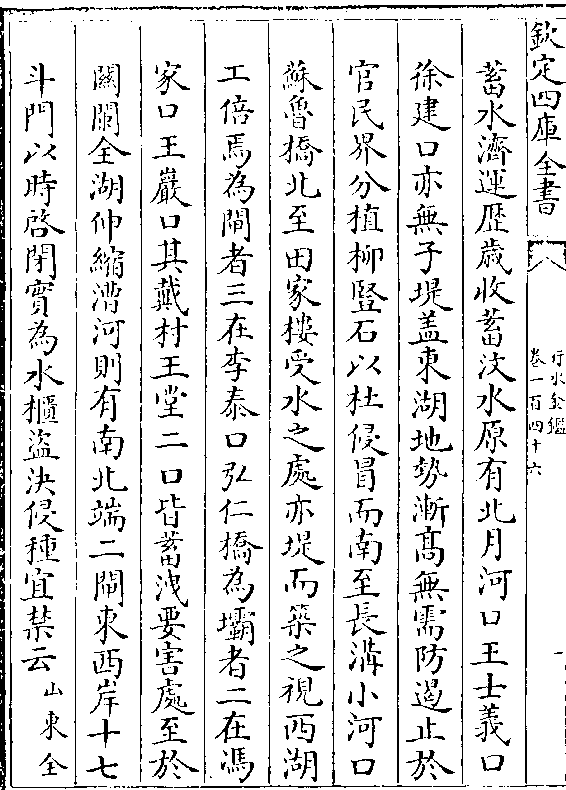 欽定四庫全書
行水金鑑
卷一百四十六
蓄水濟運歷歲收蓄汶水原有北月河口王士義口
徐建口亦無子堤蓋東湖地勢漸髙無需防遏止於
官民界分植柳豎石以杜侵冒而南至長溝小河口
蘇魯橋北至田家樓受水之處亦堤而築之視西湖
工倍焉為閘者三在李泰口弘仁橋為壩者二在馮
家口王巖口其戴村王堂二口皆蓄洩要害處至於
闗闌全湖伸縮漕河則有南北端二閘東西岸十七
斗門以時啓閉實為水櫃盜決侵種宜禁云山東全